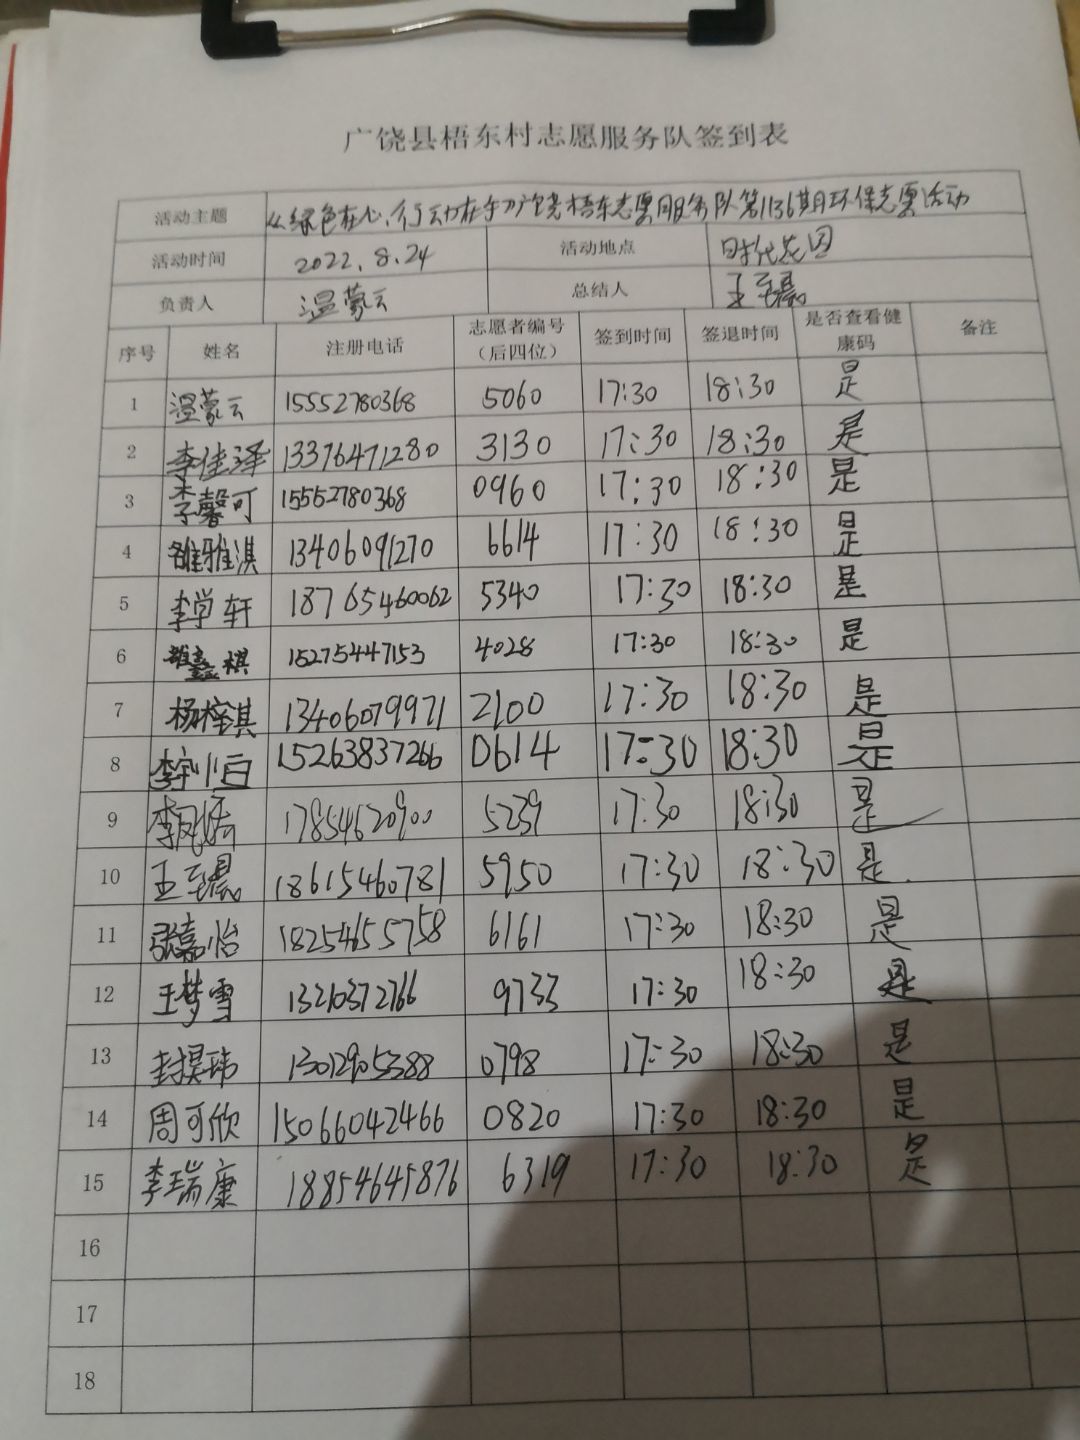 广饶县梧东村志愿服务队签到表
活动主题 从绿色在心，行动在手广饶梧东志愿服务队第1136期环保志愿活动
活动时间 2022.8.24 活动地点 时代花园
负责人 温蒙云 总结人 王至磊
序号 姓名 注册电话 志愿者编号（后四位） 签到时间 签退时间 是否查看健康码 备注
1 温蒙云 15552780368 5060 17:30 18:30 是
2 李佳泽 13376471280 3130 17:30 18:30 是
3 李馨可 15552780368 0960 17:30 18:30 是
4 雒雅淇 13406091270 6614 17:30 18:30 是
5 李学轩 18765460062 5340 17:30 18:30 是
6 雒鑫棋 15275447153 4028 17:30 18:30 是
7 杨梓淇 13406079971 2100 17:30 18:30 是
8 李宇恒 15263837266 0614 17:30 18:30 是
9 李 17854620900 5239 17:30 18:30 是
10 王至磊 18615460781 5950 17:30 18:30 是
11 张嘉怡 18254655758 6161 17:30 18:30 是
12 王梦雪 13210372766 9733 17:30 18:30 是
13 封昊玮 13012905388 0798 17:30 18:30 是
14 周可欣 15066042466 0820 17:30 18:30 是
15 李瑞康 18854645876 6319 17:30 18:30 是
16
17
18